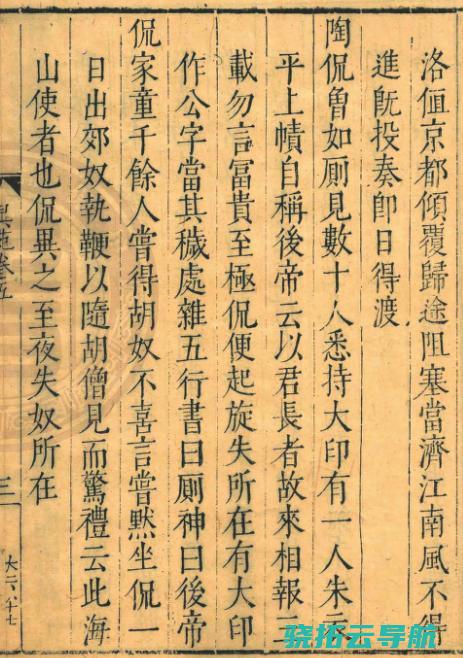 洛値京都傾覆歸途阻塞當濟江南風不得
進旣投奏卽日得渡
陶侃曾如厠見數十人悉持大印有一人朱衣
平上幘自稱後帝云以君長者故來相報三
載勿言冨貴至極侃便起旋失所在有大印
作公字當其穢處雜五行書曰厠神曰後帝
侃家童千餘人嘗得胡奴不喜言嘗黙坐侃一
日出郊奴執鞭以隨胡僧見而驚禮云此海
山使者也侃異之至夜失奴所在
異苑卷五
三
大六八十七
骁拓云导航